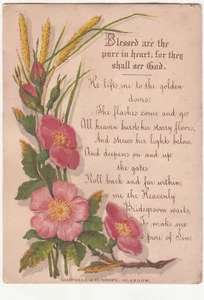 Blessed are the
pure in heart: for they
shall see God.
He lifts me to the golden
doors:
The flashes come and go;
All heaven bursts her starry floors,
And strews her lights below,
And deepens on and up
the gates
Roll back and far within,
For me the Heavenly
Bridegroom waits,
To make me
pure of Sin.
CAMPBELL & TUDHOPE, GLASGOW.